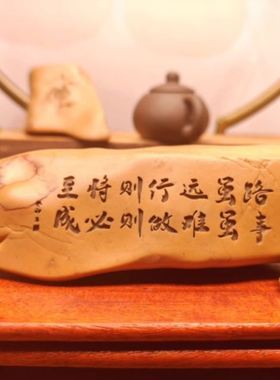 路虽远行则将至
事虽难做则必成